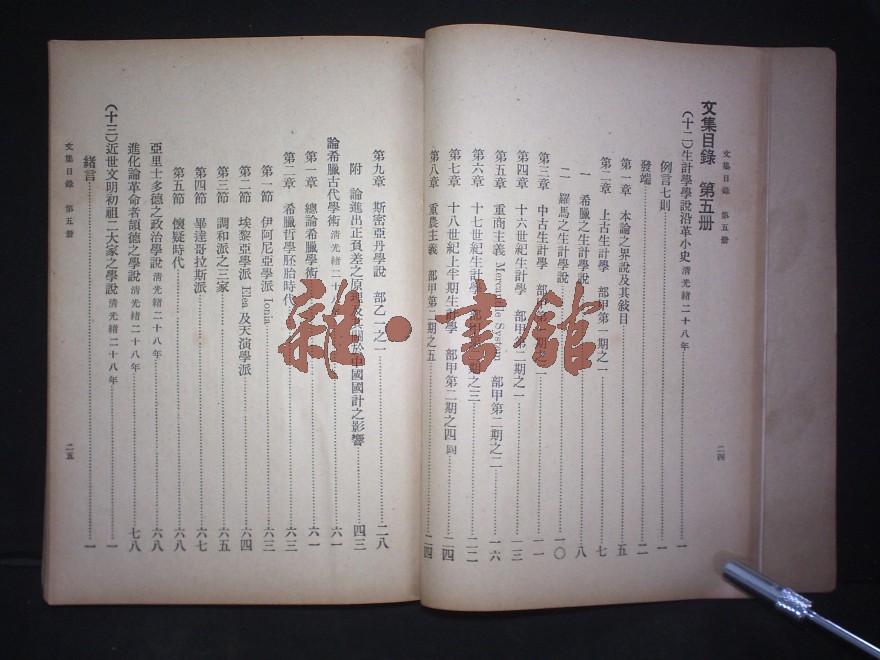 文集目錄 第五册
二四
文集目錄 第五册
(十二)生計學學說沿革小史 清光緒二十八年 一
例言七則 一
發端 二
第一章 本論之界說及其敍目 五
第二章 上古生計學 部甲第一期之一 七
一 希臘之生計學說 八
二 羅馬之生計學說 一〇
第三章 中古生計學 部甲第一期之二 一一
第四章 十六世紀生計學 部甲第二期之一 一三
第五章 重商主義 Mercantile System 部甲第二期之二 一六
第六章 十七世紀生計學 部甲第二期之三 二二
第七章 十八世紀上半期生計學 部甲第二期之四 二四
第八章 重農主義 部甲第二期之五 二四
第九章 斯密亞丹學說 部乙一之一 二八
附 論進出正負差之原理及其關於中國國計之影響 四三
論希臘古代學術 清光緒二十八 六一
第一章 總論希臘學術 六一
第二章 希臘哲學胚胎時代 六三
第一節 伊阿尼亞學派 Ionia 六三
第二節 埃黎亞學派 Elea 及天演學派 六四
第三節 調和派之三家 六五
第四節 畢達哥拉斯派 六七
第五節 懷疑時代 六八
亞里士多德之政治學說 清光緒二十八年 六八
進化論革命者頡德之學說 清光緒二十八年 七八
(十三)近世文明初祖二大家之學說 清光緒二十八年 一
緒言 一
文集目錄 第五册
二五
雜·書館